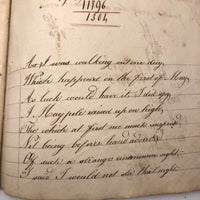 11896
1504
As I was walking out one day,
Which happened on the first of May,
As luck would have it I did spy
A May pole raised up on high,
The which at first me much surprized
Not being before hand advertized
Of such a strange uncommon sight
I said I would not stir that night